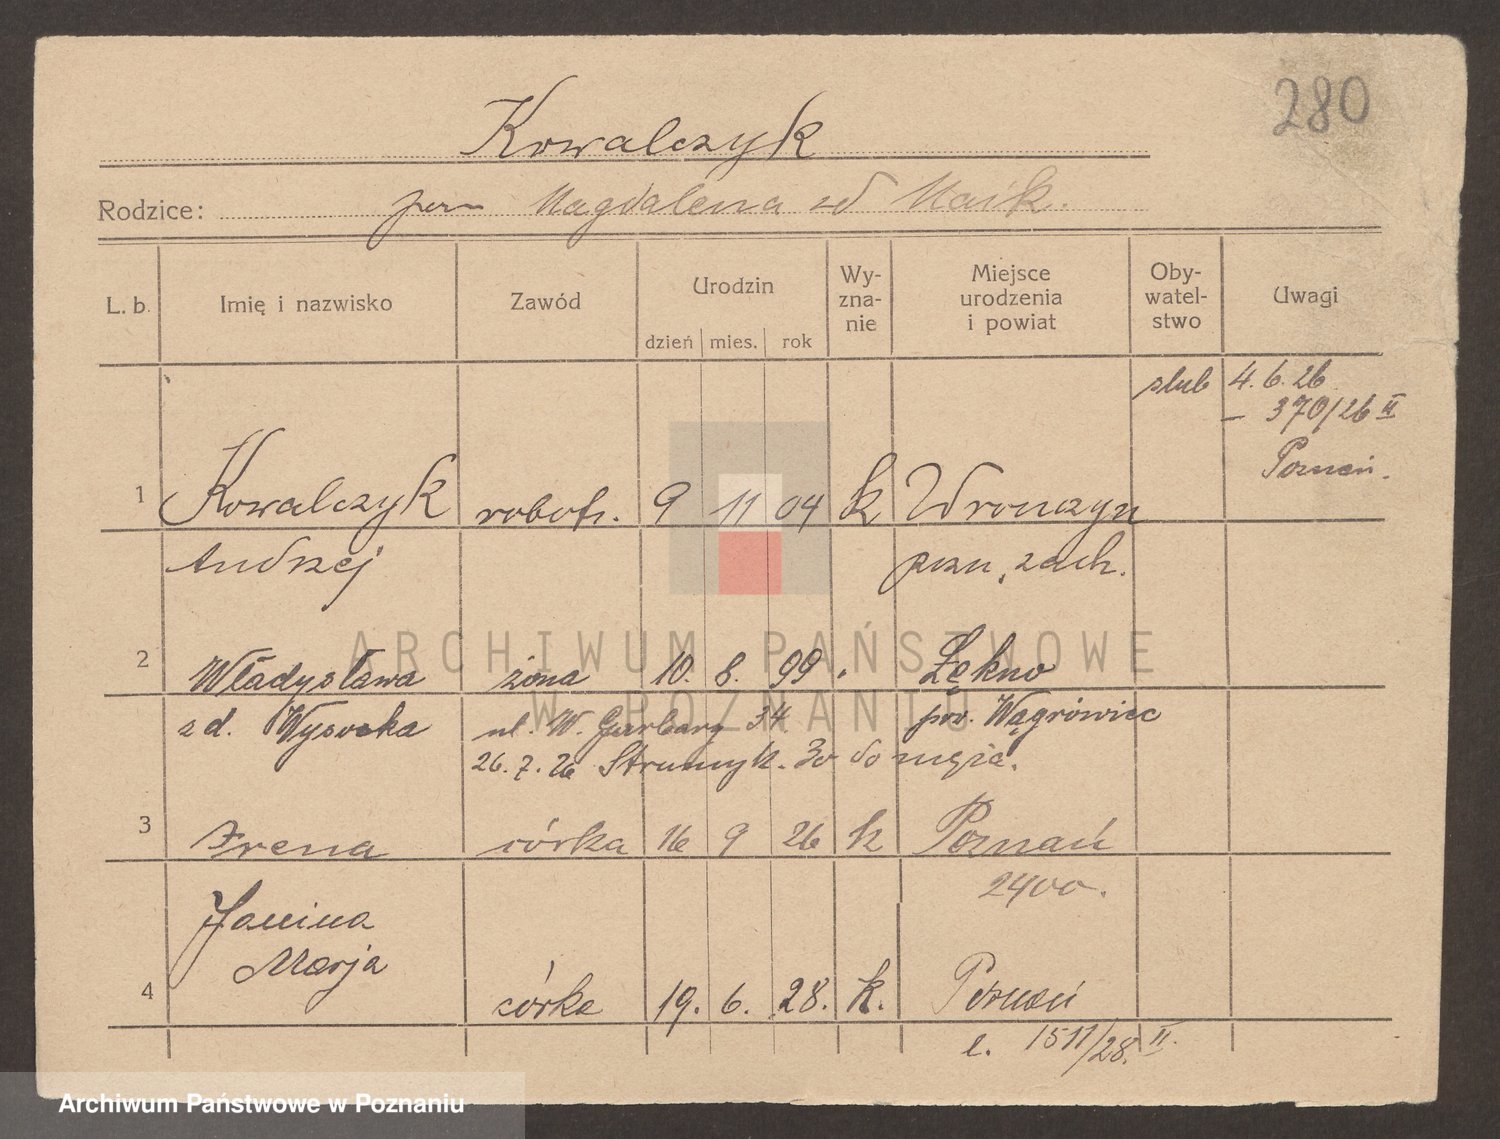 280
Kowalczyk
Rodzice: Magdalena zd
L. b. Imię i nazwisko Zawód Urodzin dzień mies. rok Wy-zna-nie Miejsce urodzenia i powiat Oby-watel-stwo Uwagi
ślub 4. 6. 26
– 370/26 II
Poznań.
1 Kowalczyk robotn. 9 11 04 k Wronczyn
Andrzej pozn. zach.
2 Władysława żona 10. 8. 99 Łękno
zd. Wysocka ul. W. Garbary 34 pow. Wągrówiec
26. 7. 26 Strumyk. 30 do męża.
3 Irena córka 16 9 26 k Poznań
2400.
Janina
Marja
4 córka 19. 6. 28. k. Poznań
l. 1511/28. II.
ARCHIWUM PAŃSTWOWE
W POZNANIU
Archiwum Państwowe w Poznaniu